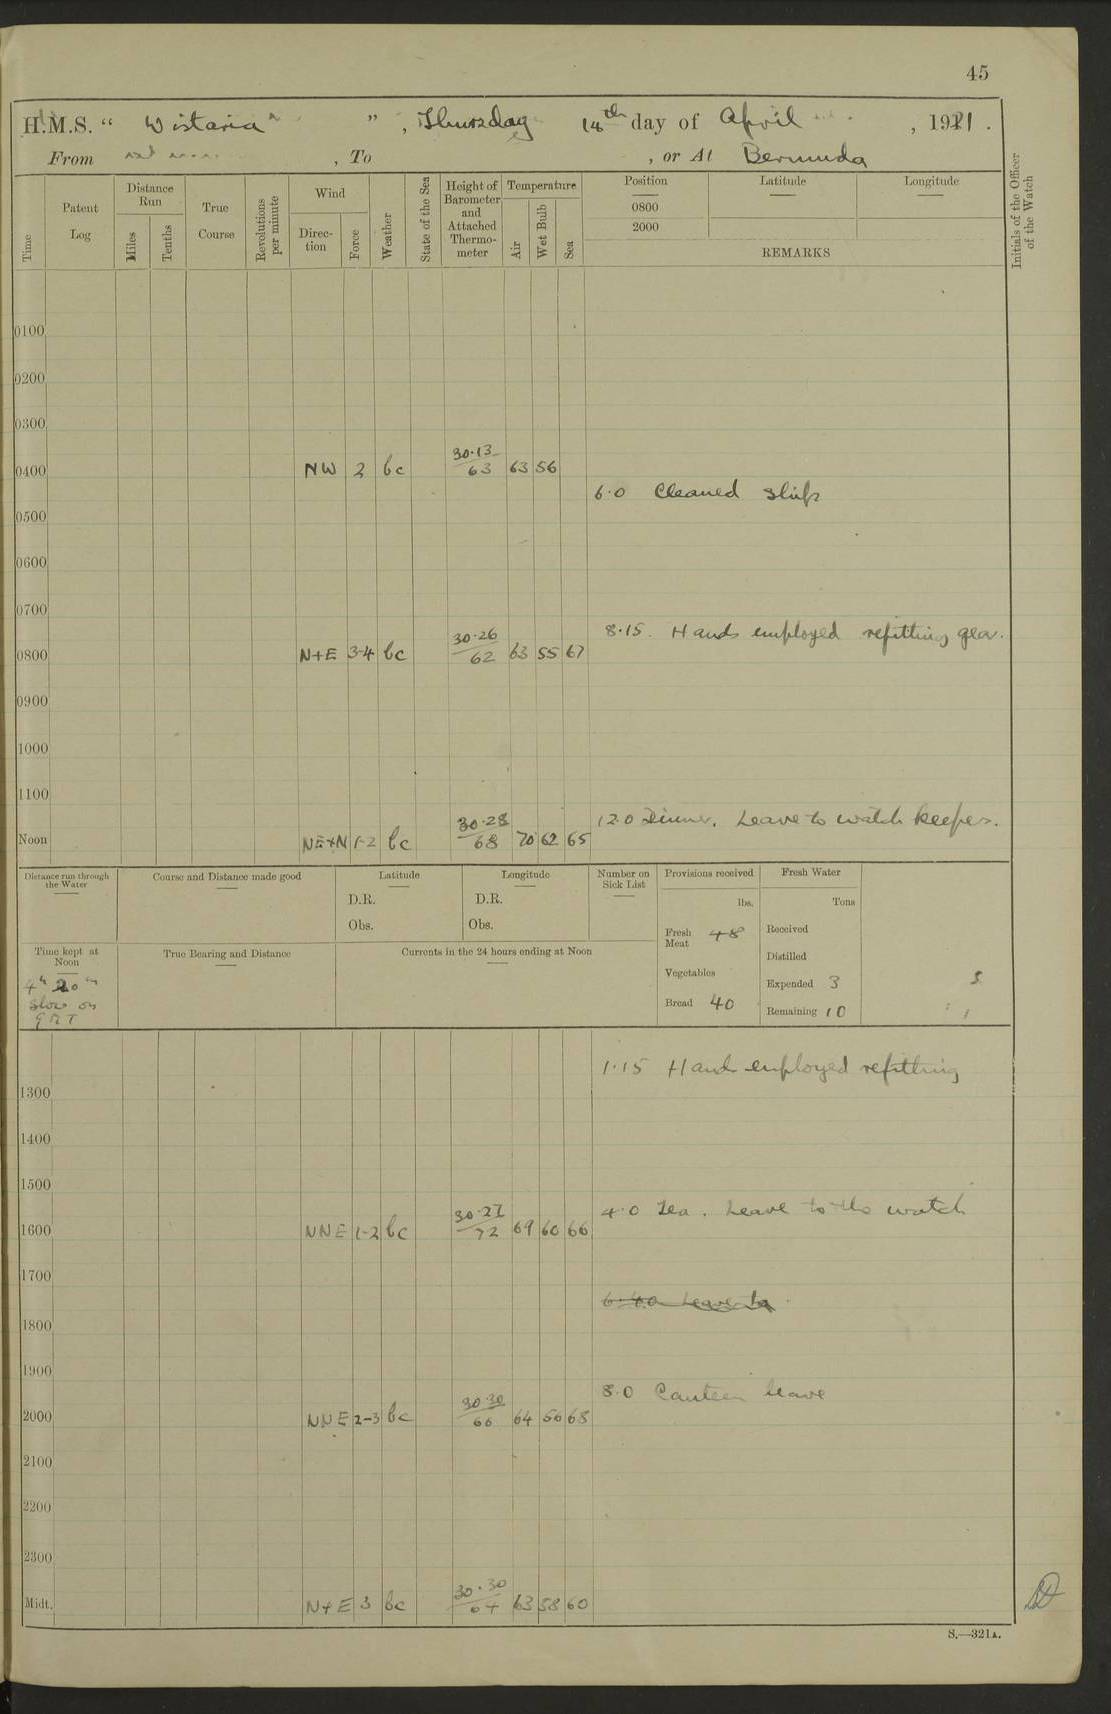 45
H.M.S. “ Wistaria ” , Thursday 14th day of April , 1921 .
From , To , or At Bermuda
Time
Patent Log
Distance Run
Miles
Tenths
True Course
Revolutions per minute
Wind
Direction
Force
Weather
State of the Sea
Height of Barometer and Attached Thermometer
Temperature
Air
Wet Bulb
Sea
Position
0800
2000
Latitude
Longitude
REMARKS
Initials of the Officer of the Watch
0100
0200
0300
0400 NW 2 bc 30.13 63 63 56
6.0 Cleaned ship
0500
0600
0700
8.15. Hands employed refitting gear.
0800 N+E 3-4 bc 30.26 62 63 55 67
0900
1000
1100
12.0 Dinner. Leave to watch keepers.
Noon NE+N 1-2 bc 30.28 68 70 62 65
Distance run through the Water
Course and Distance made good
Latitude
D.R.
Obs.
Longitude
D.R.
Obs.
Number on Sick List
Provisions received
lbs.
Fresh Meat 48
Vegetables
Bread 40
Fresh Water
Tons
Received
Distilled
Expended 3
Remaining 10
Time kept at Noon
4h 20m
Slow on
GMT
True Bearing and Distance
Currents in the 24 hours ending at Noon
1.15 Hands employed refitting
1300
1400
1500
4.0 Tea. Leave to the watch
1600 NNE 1-2 bc 30.27 72 69 60 66
1700
6.40 Leave to
1800
1900
8.0 Canteen leave
2000 NNE 2-3 bc 30.30 66 64 56 68
2100
2200
2300
Midt. N+E 3 bc 30.30 64 63 58 60
S.—321A.